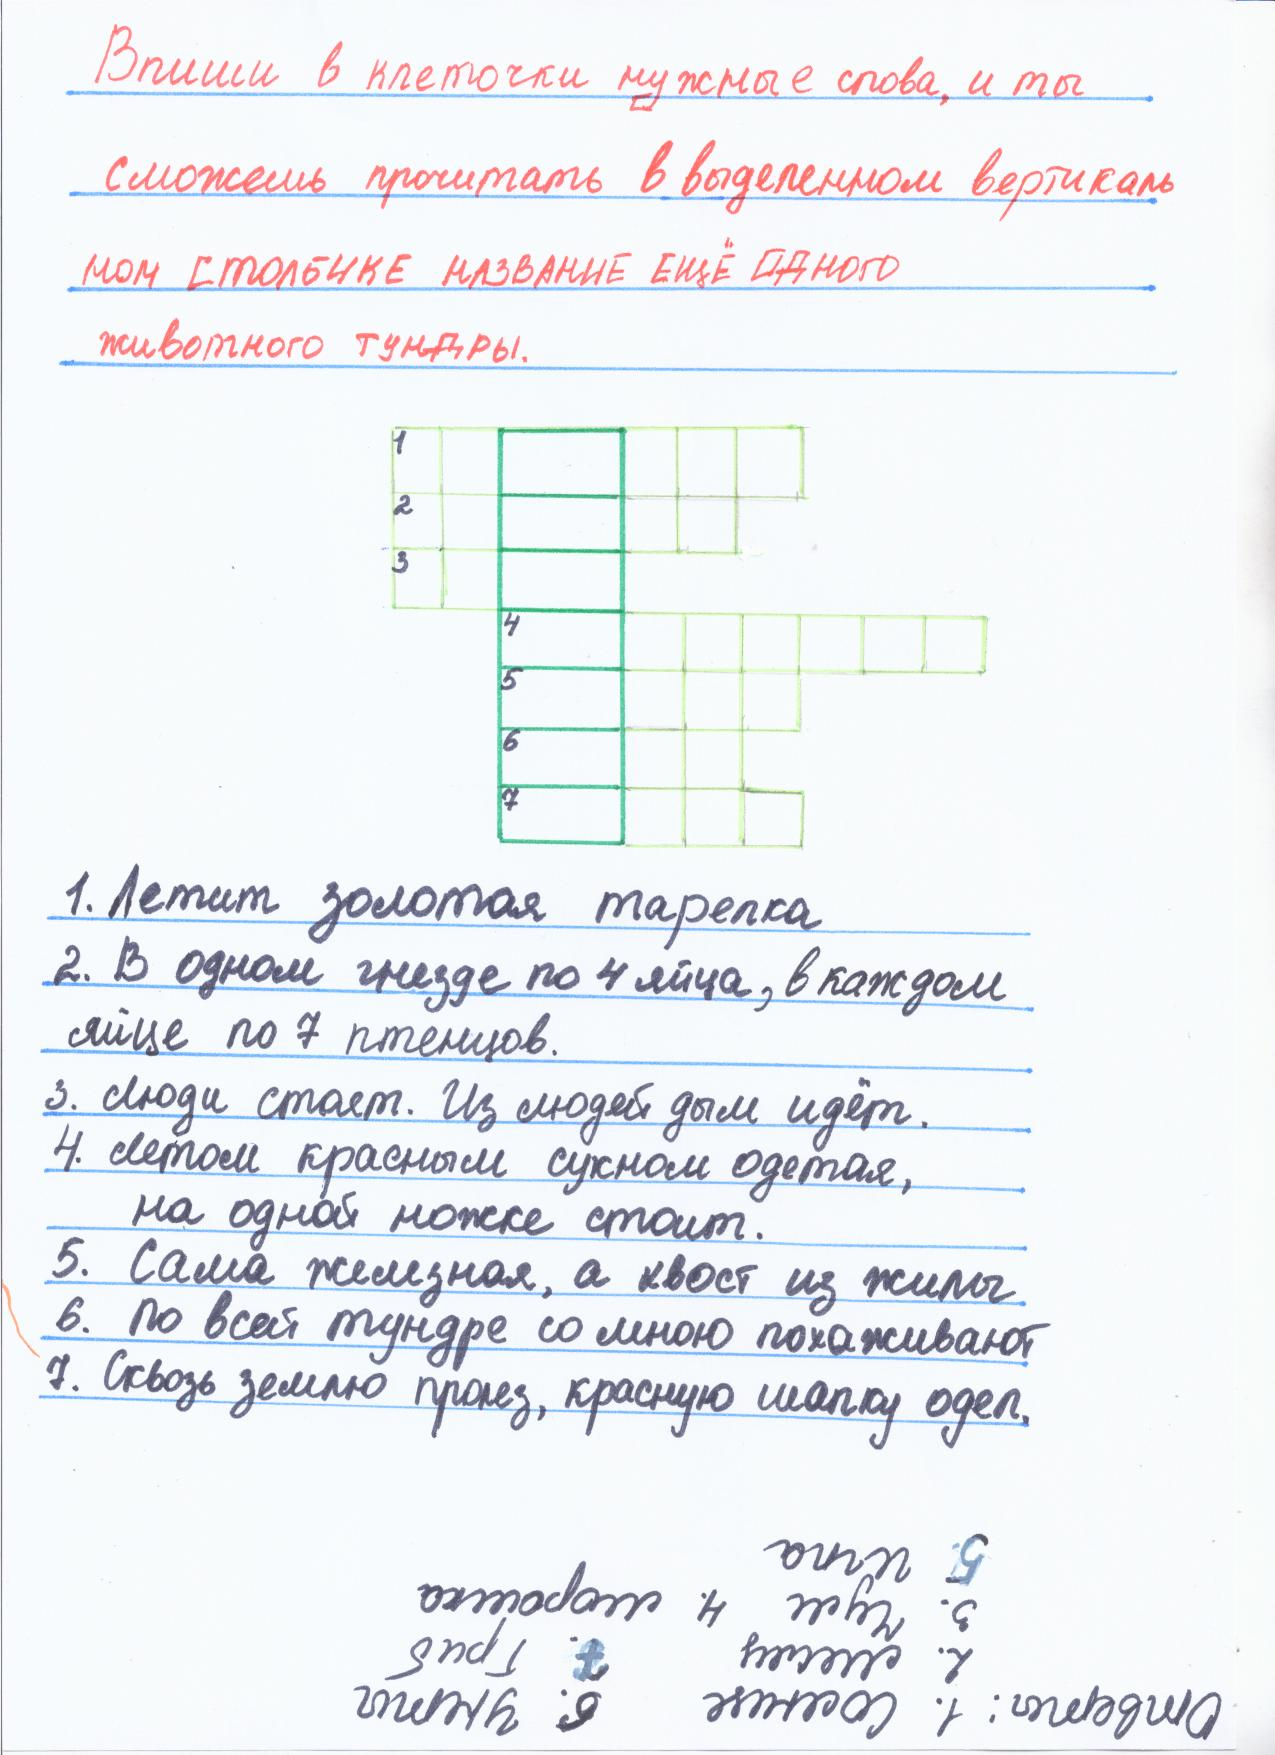 Впиши в клеточки нужные слова, и ты
сможешь прочитать в выделенном вертикаль
ном столбике название ещё одного
животного тундры.
1
2
3
4
5
6
7
1. Летит золотая тарелка
2. В одном гнезде по 4 яйца, в каждом
яйце по 7 птенцов.
3. Люди стоят. Из людей дым идёт.
4. Летом красным сукном одетая,
на одной ножке стоит.
5. Сама железная, а хвост из жилы
6. По всей тундре со мною похаживают
7. Сквозь землю пролез, красную шапку одел.
Ответы: 1. Солнце 6.
2. месяц 7. Гриб
3. Чум 4. морошка
5. игла